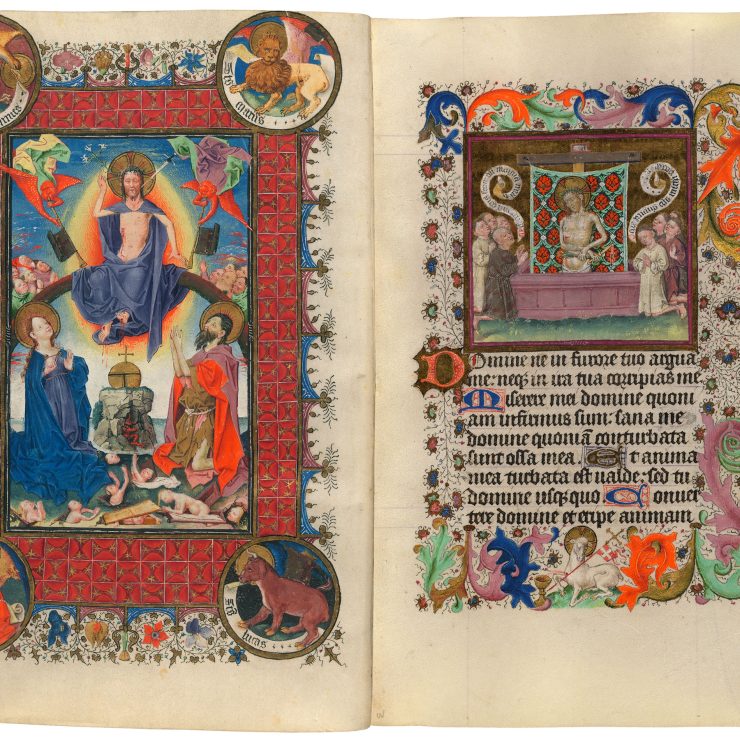 marcus
lucas
Domine ne in furore tuo argua
me: neqꝫ in ira tua corripias me
Miserere mei domine quoni
am infirmus sum: sana me
domine quoniā conturbata
sunt ossa mea. Et anima
mea turbata est valde: sed tu
domine usqꝫ quo Conuer
tere domine et eripe animam